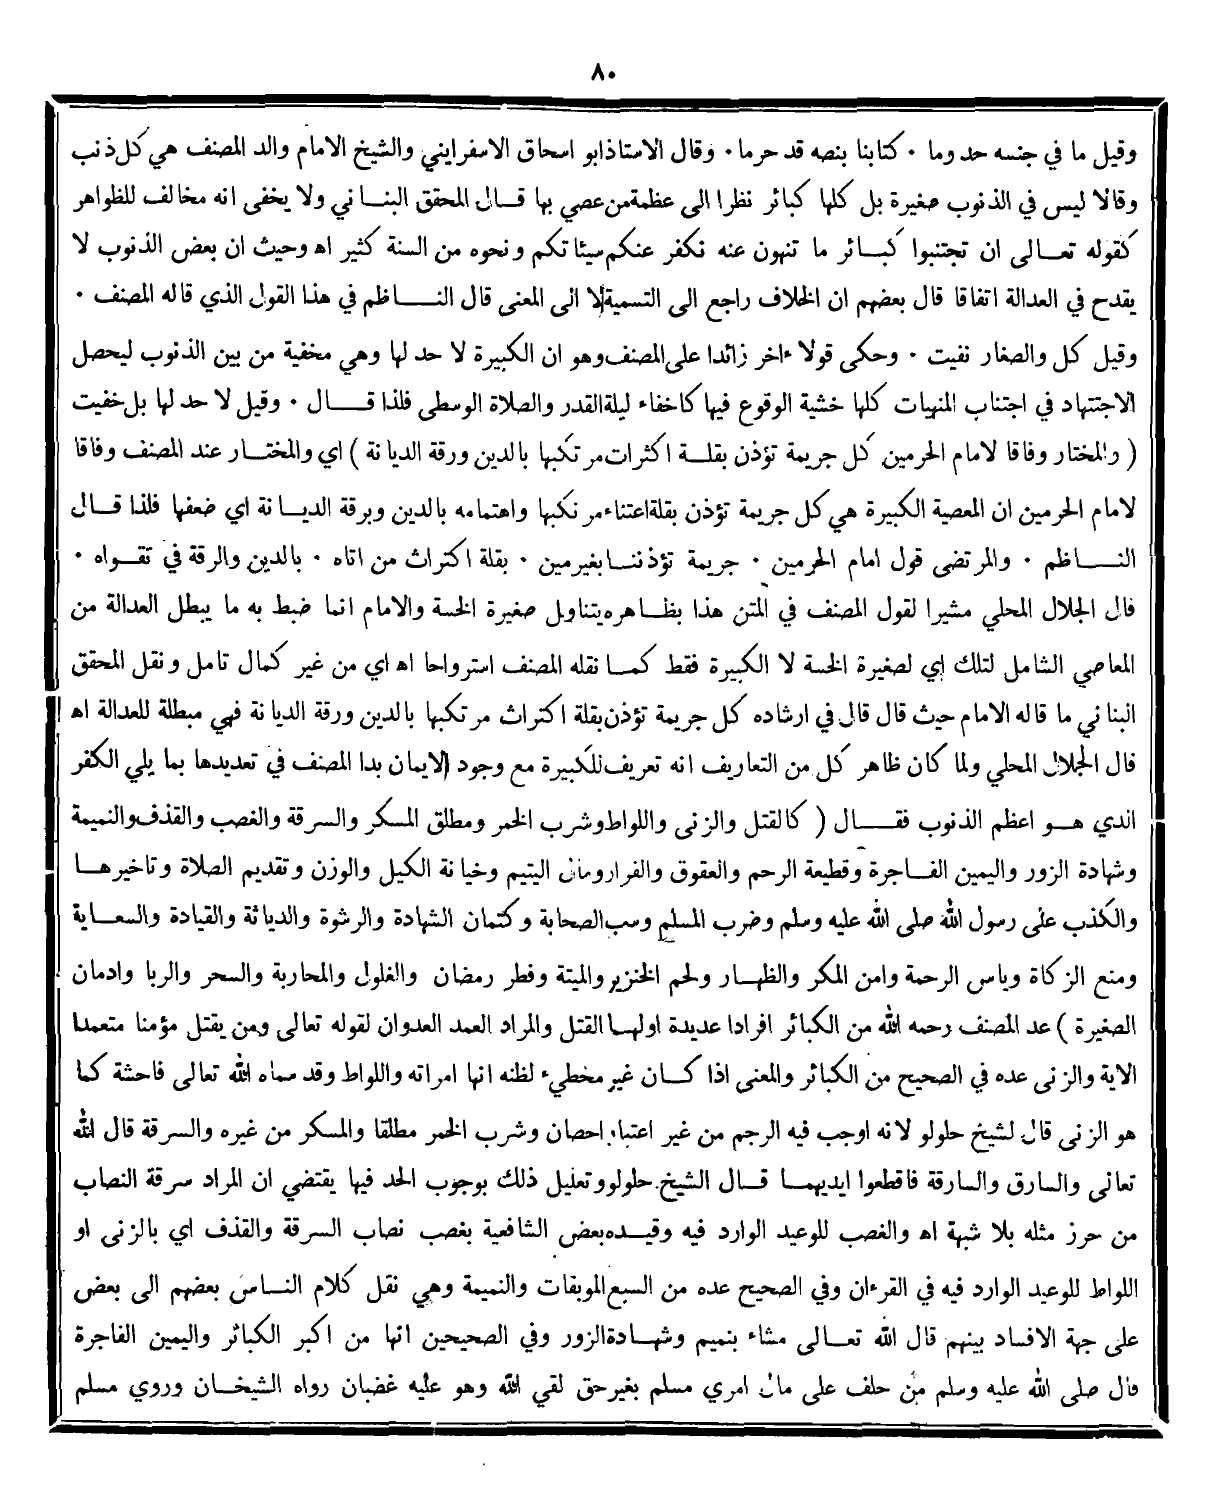 ٨٠
وقيل ما في جنسه حد وما ٠ كتابنا بنصه قد حرما ٠ وقال الاستاذ ابو اسحاق الاسفرايني والشيخ الامام والد المصنف هي كل ذنب
وقالا ليس في الذنوب صغيرة بل كلها كبائر نظرا الى عظمة من عصي بها قال المحقق البناني ولا يخفى انه مخالف للظواهر
كقوله تعالى ان تجتنبوا كبائر ما تنهون عنه نكفر عنكم سيئاتكم ونحوه من السنة كثير اه وحيث ان بعض الذنوب لا
يقدح في العدالة اتفاقا قال بعضهم ان الخلاف راجع الى التسمية لا الى المعنى قال الناظم في هذا القول الذي قاله المصنف ٠
وقيل كل والصغار نفيت ٠ وحكى قولا ءاخر زائدا على المصنف وهو ان الكبيرة لا حد لها وهي مخفية من بين الذنوب ليحصل
الاجتهاد في اجتناب المنهيات كلها خشية الوقوع فيها كاخفاء ليلة القدر والصلاة الوسطى فلذا قال ٠ وقيل لا حد لها بل خفيت
( والمختار وفاقا لامام الحرمين كل جريمة تؤذن بقلة اكثرات مرتكبها بالدين ورقة الديانة ) اي والمختار عند المصنف وفاقا
لامام الحرمين ان المعصية الكبيرة هي كل جريمة تؤذن بقلة اعتناء مرتكبها واهتمامه بالدين وبرقة الديانة اي ضعفها فلذا قال
الناظم ٠ والمرتضى قول امام الحرمين ٠ جريمة تؤذننا بغيرمين ٠ بقلة اكتراث من اتاه ٠ بالدين والرقة في تقواه ٠
قال الجلال المحلي مشيرا لقول المصنف في المتن هذا بظاهره يتناول صغيرة الخسة والامام انما ضبط به ما يبطل العدالة من
المعاصي الشامل لتلك اي لصغيرة الخسة لا الكبيرة فقط كما نقله المصنف استرواحا اه اي من غير كمال تامل ونقل المحقق
البناني ما قاله الامام حيث قال قال في ارشاده كل جريمة تؤذن بقلة اكتراث مرتكبها بالدين ورقة الديانة فهي مبطلة للعدالة اه
قال الجلال المحلي ولما كان ظاهر كل من التعاريف انه تعريف للكبيرة مع وجود الايمان بدا المصنف في تعديدها بما يلي الكفر
الذي هو اعظم الذنوب فقال ( كالقتل والزنى واللواط وشرب الخمر ومطلق المسكر والسرقة والغصب والقذف والنميمة
وشهادة الزور واليمين الفاجرة وقطيعة الرحم والعقوق والفرار ومال اليتيم وخيانة الكيل والوزن وتقديم الصلاة وتاخيرها
والكذب على رسول الله صلى الله عليه وسلم وضرب المسلم وسب الصحابة وكتمان الشهادة والرشوة والدياثة والقيادة والسعاية
ومنع الزكاة وياس الرحمة وامن المكر والظهار ولحم الخنزير والميتة وفطر رمضان والغلول والمحاربة والسحر والربا وادمان
الصغيرة ) عد المصنف رحمه الله من الكبائر افرادا عديدة اولها القتل والمراد العمد العدوان لقوله تعالى ومن يقتل مؤمنا متعمدا
الاية والزنى عده في الصحيح من الكبائر والمعنى اذا كان غير مخطيء لظنه انها امراته واللواط وقد سماه الله تعالى فاحشة كما
هو الزنى قال لشيخ حلولو لانه اوجب فيه الرجم من غير اعتبار احصان وشرب الخمر مطلقا والمسكر من غيره والسرقة قال الله
تعالى والسارق والسارقة فاقطعوا ايديهما قال الشيخ حلولو وتعليل ذلك بوجوب الحد فيها يقتضي ان المراد سرقة النصاب
من حرز مثله بلا شبهة اه والغصب للوعيد الوارد فيه وقيده بعض الشافعية بغصب نصاب السرقة والقذف اي بالزنى او
اللواط للوعيد الوارد فيه في القرءان وفي الصحيح عده من السبع الموبقات والنميمة وهي نقل كلام الناس بعضهم الى بعض
على جهة الافساد بينهم قال الله تعالى مشاء بنميم وشهادة الزور وفي الصحيحين انها من اكبر الكبائر واليمين الفاجرة
قال صلى الله عليه وسلم من حلف على مال امري مسلم بغير حق لقي الله وهو عليه غضبان رواه الشيخان وروي مسلم